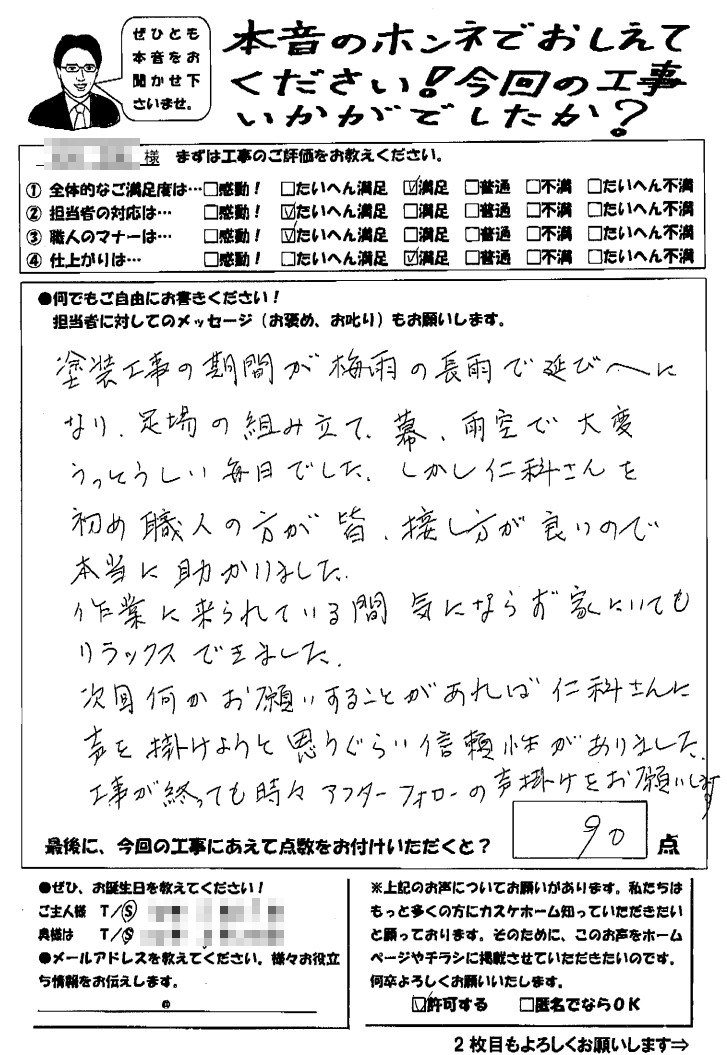 ぜひとも
本音をお
聞かせ下
さいませ。
本音のホンネでおしえて
ください！今回の工事
いかがでしたか？
様 まずは工事のご評価をお教えください。
① 全体的なご満足度は… □感動！ □たいへん満足 ☑満足 □普通 □不満 □たいへん不満
② 担当者の対応は… □感動！ ☑たいへん満足 □満足 □普通 □不満 □たいへん不満
③ 職人のマナーは… □感動！ ☑たいへん満足 □満足 □普通 □不満 □たいへん不満
④ 仕上がりは… □感動！ □たいへん満足 ☑満足 □普通 □不満 □たいへん不満
●何でもご自由にお書きください！
担当者に対してのメッセージ（お褒め、お叱り）もお願いします。
塗装工事の期間が梅雨の長雨で延びへに
なり、足場の組み立て、幕、雨空で大変
うっとうしい毎日でした。しかし仁科さんを
初め職人の方が皆、接し方が良いので
本当に助かりました。
作業に来られている間気にならず家にいても
リラックスできました。
次回何かお願いすることがあれば仁科さんに
声を掛けようと思うぐらい信頼性がありました。
工事が終っても時々アフターフォローの声掛けをお願いします
最後に、今回の工事にあえて点数をお付けいただくと？ 90 点
●ぜひ、お誕生日を教えてください！
ご主人様 T／Ⓢ
奥様は T／Ⓢ
●メールアドレスを教えてください。様々お役立
ち情報をお伝えします。
@
※上記のお声についてお願いがあります。私たちは
もっと多くの方にカスケホーム知っていただきたい
と願っております。そのために、このお声をホーム
ページやチラシに掲載させていただきたいのです。
何卒よろしくお願いいたします。
☑許可する □匿名でならOK
2枚目もよろしくお願いします⇒